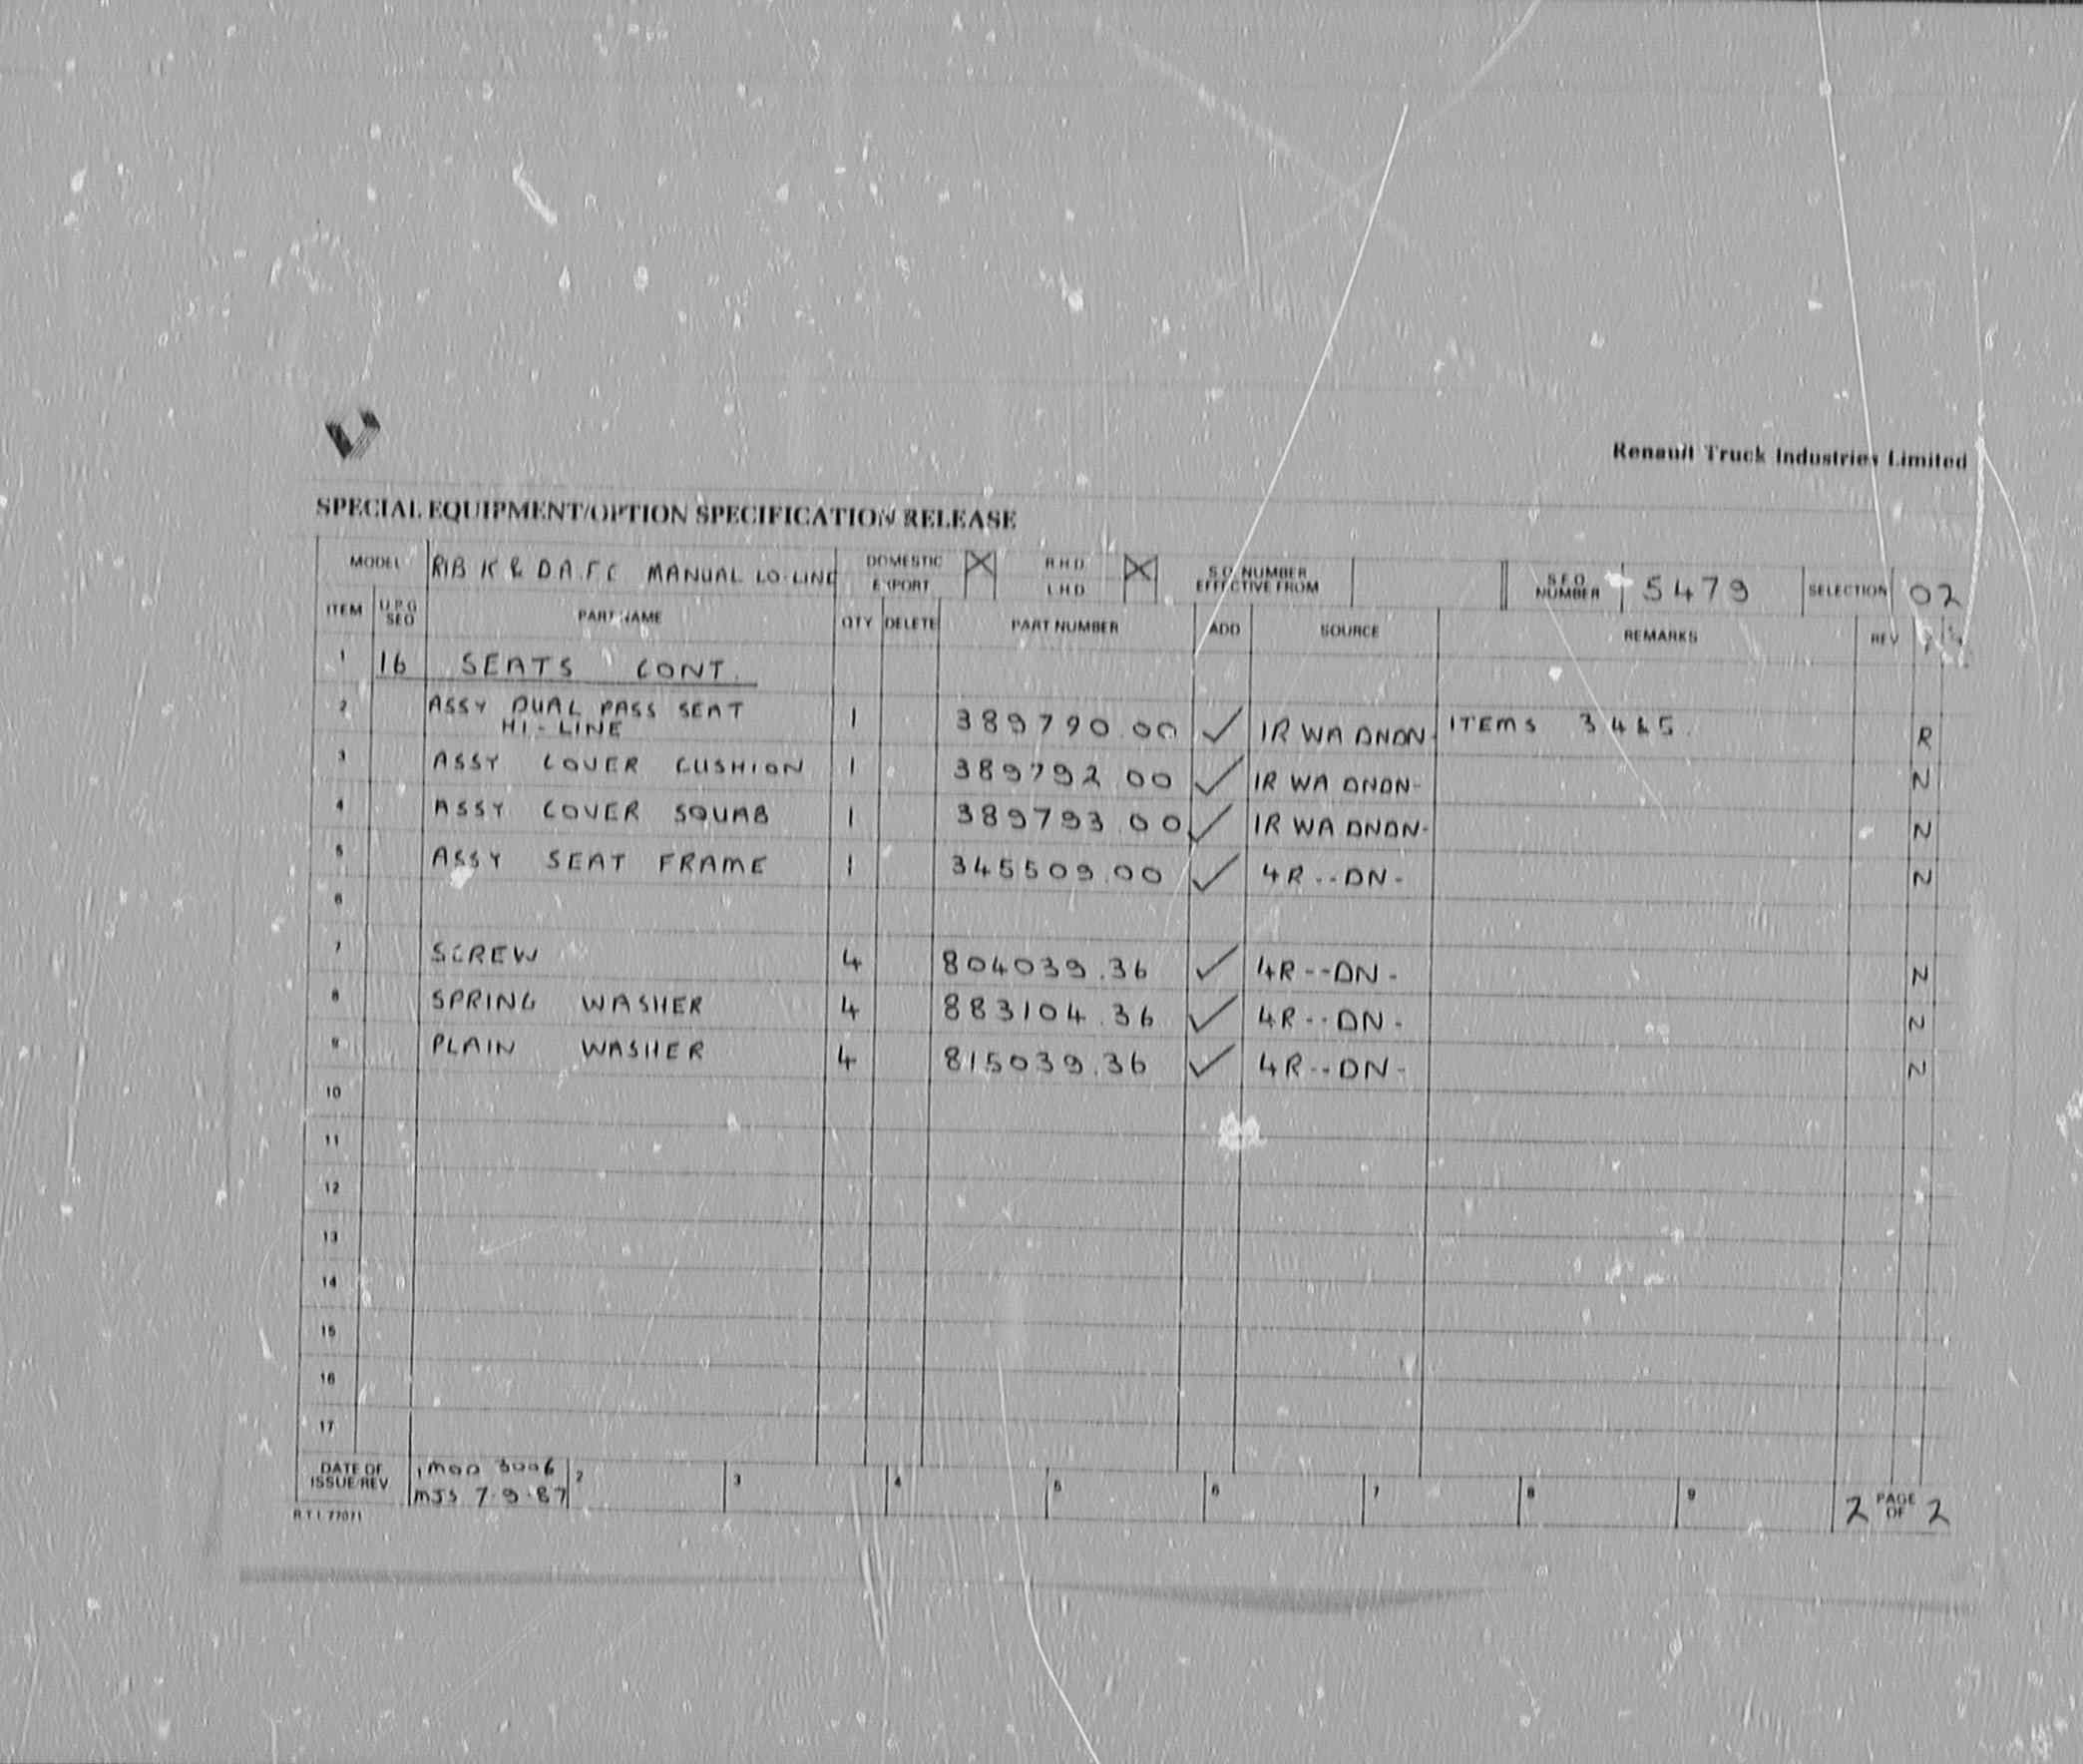 Renault Truck Industries Limited
SPECIAL EQUIPMENT/OPTION SPECIFICATION RELEASE
MODEL MANUAL LO-LINE DOMESTIC EXPORT X RHD LHD X S.O. NUMBER EFFECTIVE FROM S.E.O. NUMBER 5479 SELECTION 02
ITEM U.P.G SEQ PART NAME QTY DELETE PART NUMBER ADD SOURCE REMARKS REV
1 16 SEATS CONT.
2 ASSY DUAL PASS SEAT
HI-LINE 1 389790.00 ✓ 1R WA DNDN- ITEMS 3 4 & 5. R
3 ASSY COVER CUSHION 1 389792.00 ✓ 1R WA DNDN- N
4 ASSY COVER SQUAB 1 389793.00 ✓ 1R WA DNDN- N
5 ASSY SEAT FRAME 1 345509.00 ✓ 4R--DN- N
6
7 SCREW 4 804039.36 ✓ 4R--DN- N
8 SPRING WASHER 4 883104.36 ✓ 4R--DN- N
9 PLAIN WASHER 4 815039.36 ✓ 4R--DN- N
10
11
12
13
14
15
16
17
DATE OF ISSUE/REV 1 MOD 3006 2 3 4 5 6 7 8 9 2 PAGE OF 2
MJS 7.9.87
R.T.I. 77071